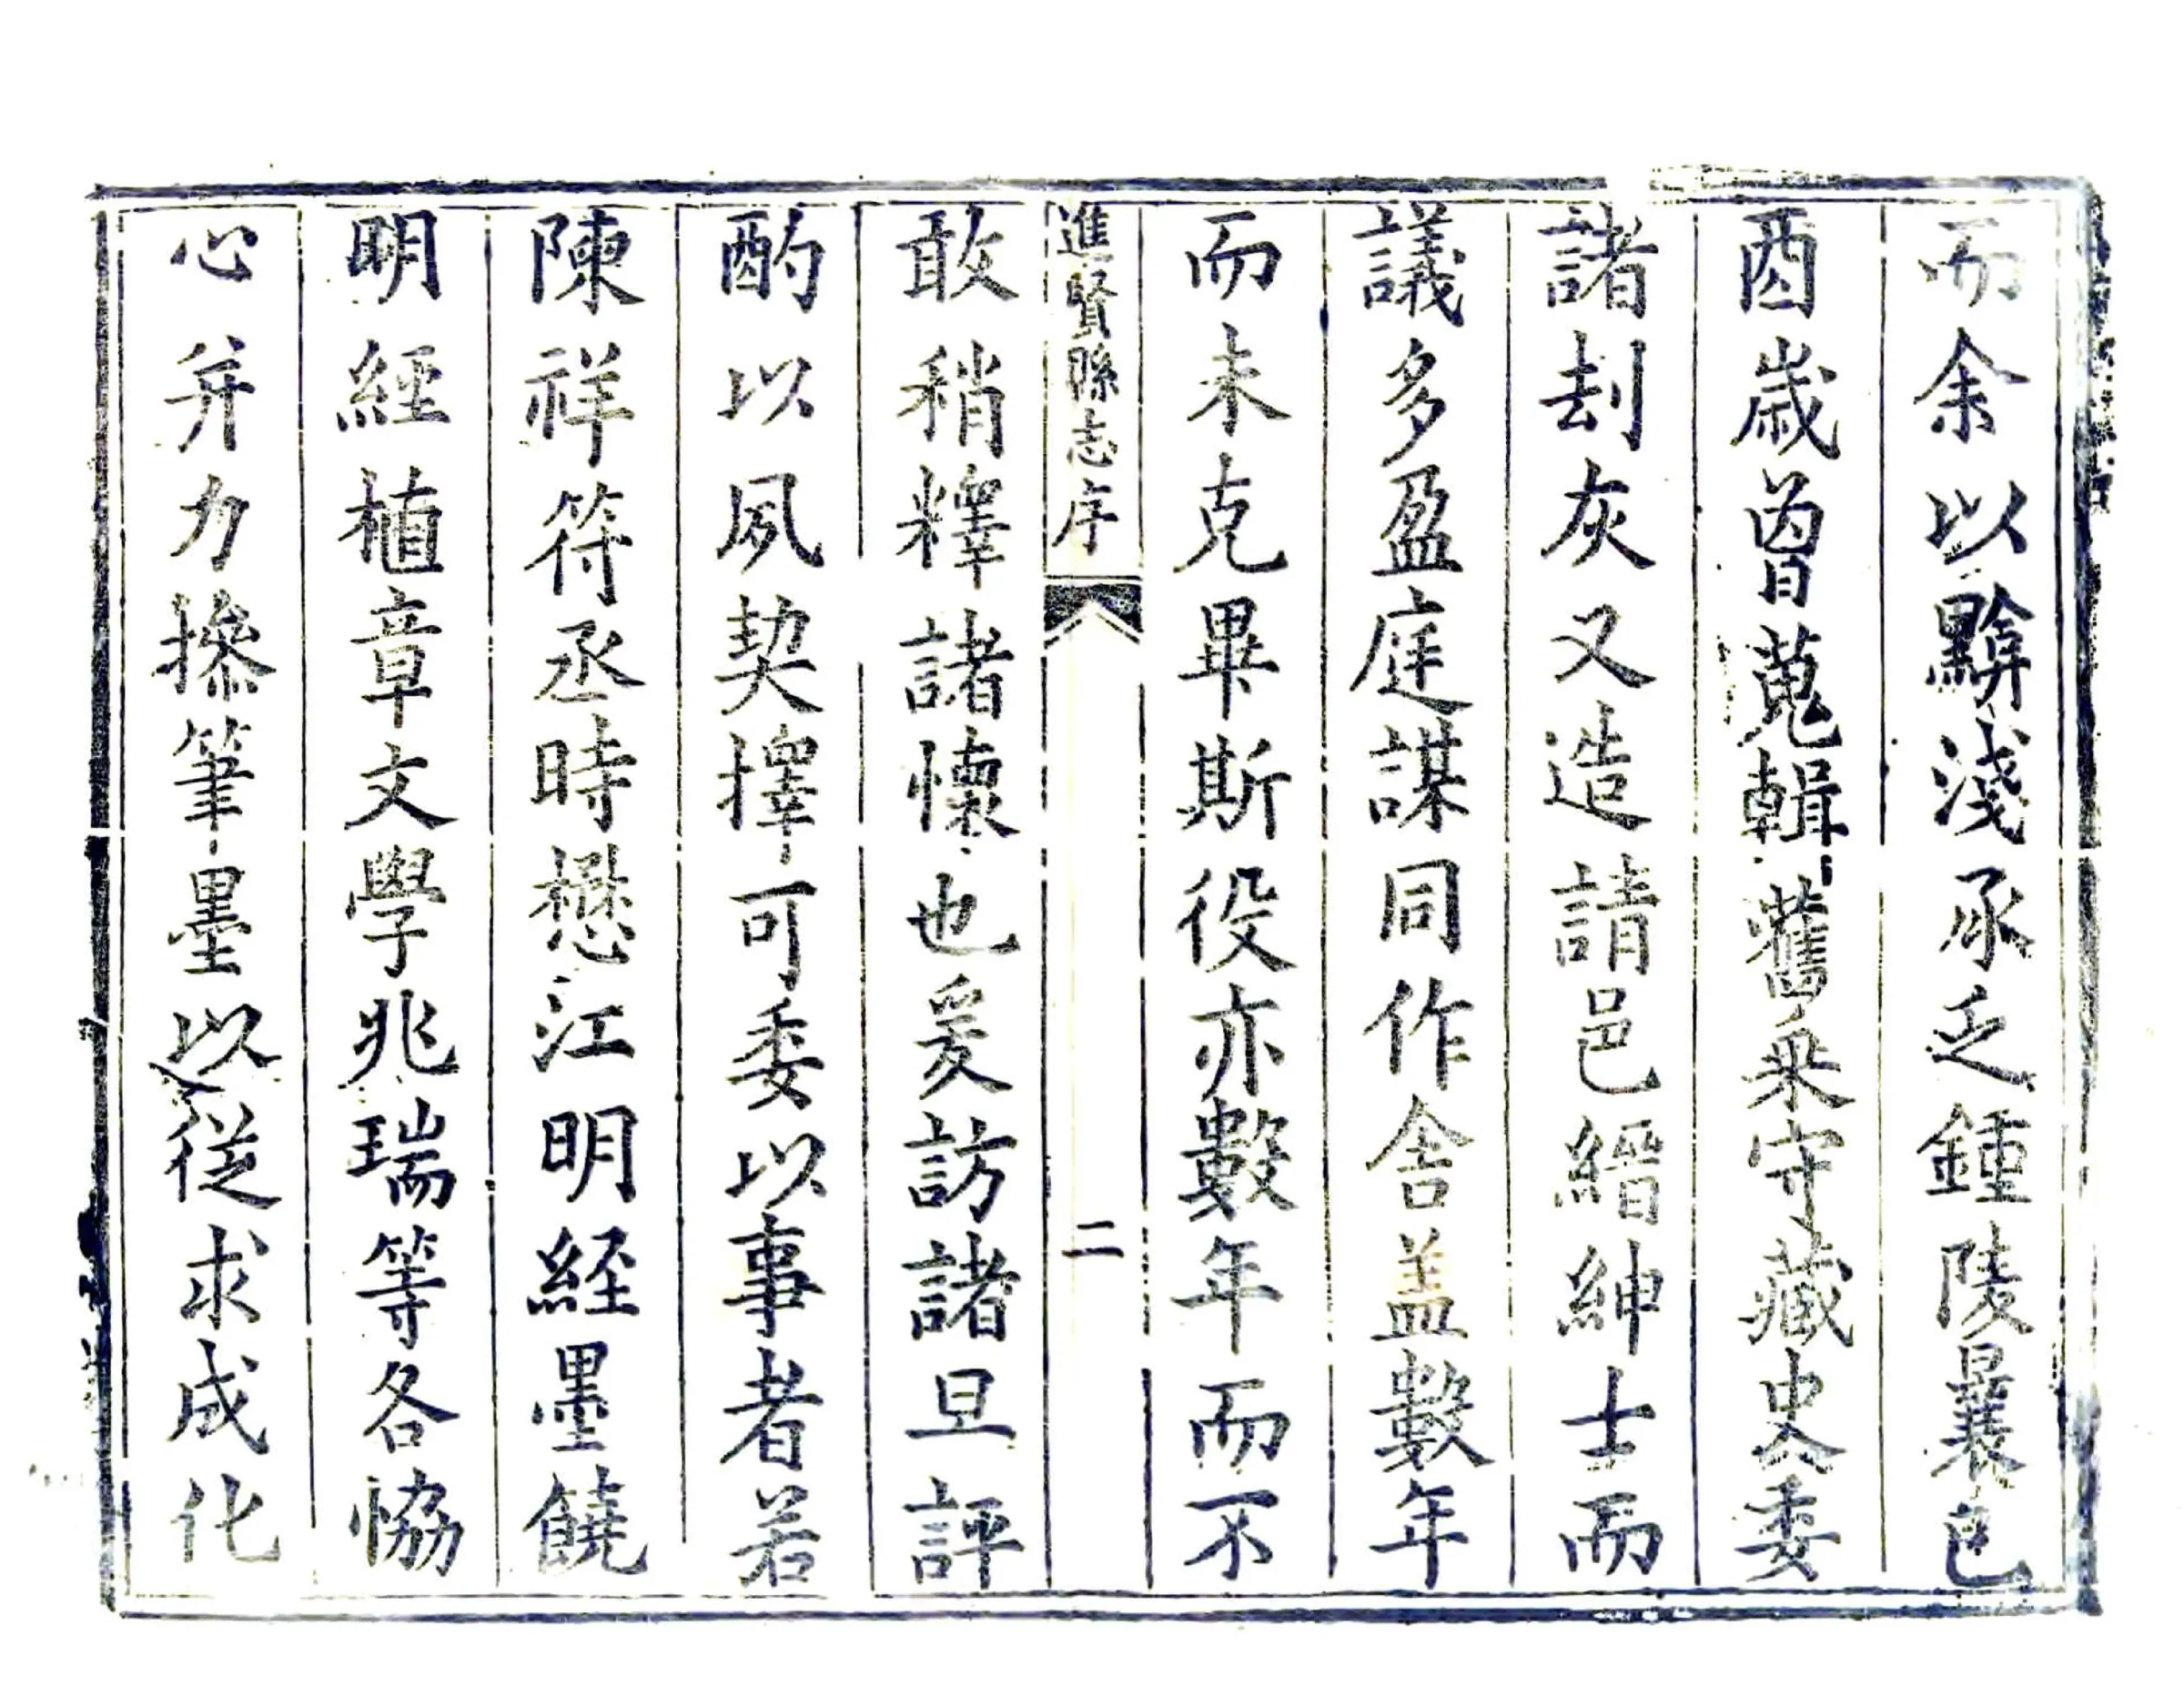 而余以黭淺承乏鍾陵曩邑
酉歲曾蒐輯舊乘守藏史委
諸刦灰又造請邑縉紳士而
議多盈庭謀同作舍盖數年
而未克畢斯役亦數年而不
進賢縣志序 二
敢稍釋諸懷也爰訪諸旦評
酌以夙契擇可委以事者若
陳祥符丞時懋江明經墨饒
明經植章文學兆瑞等各恊
心并力摻筆墨以從求成化